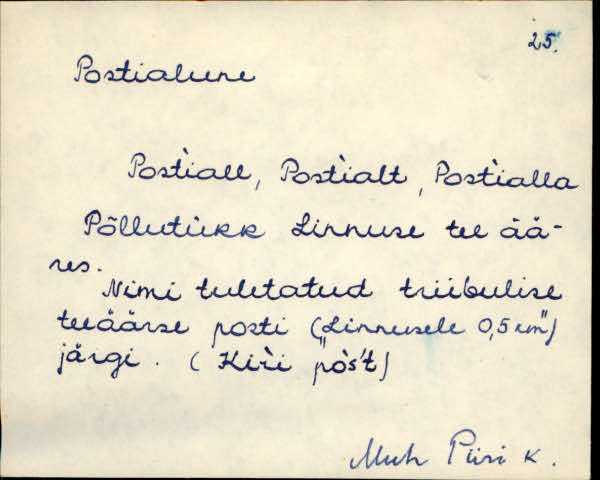 25.
Postialune
Post̀iall, Post̀ialt, Post̀ialla
Põllutükk Linnuse tee ää-
res.
Nimi tuletatud triibulise
teeäärse posti (Linnusele 0,5 km")
järgi. (Kiri "pòs't)
Muh Piiri k.